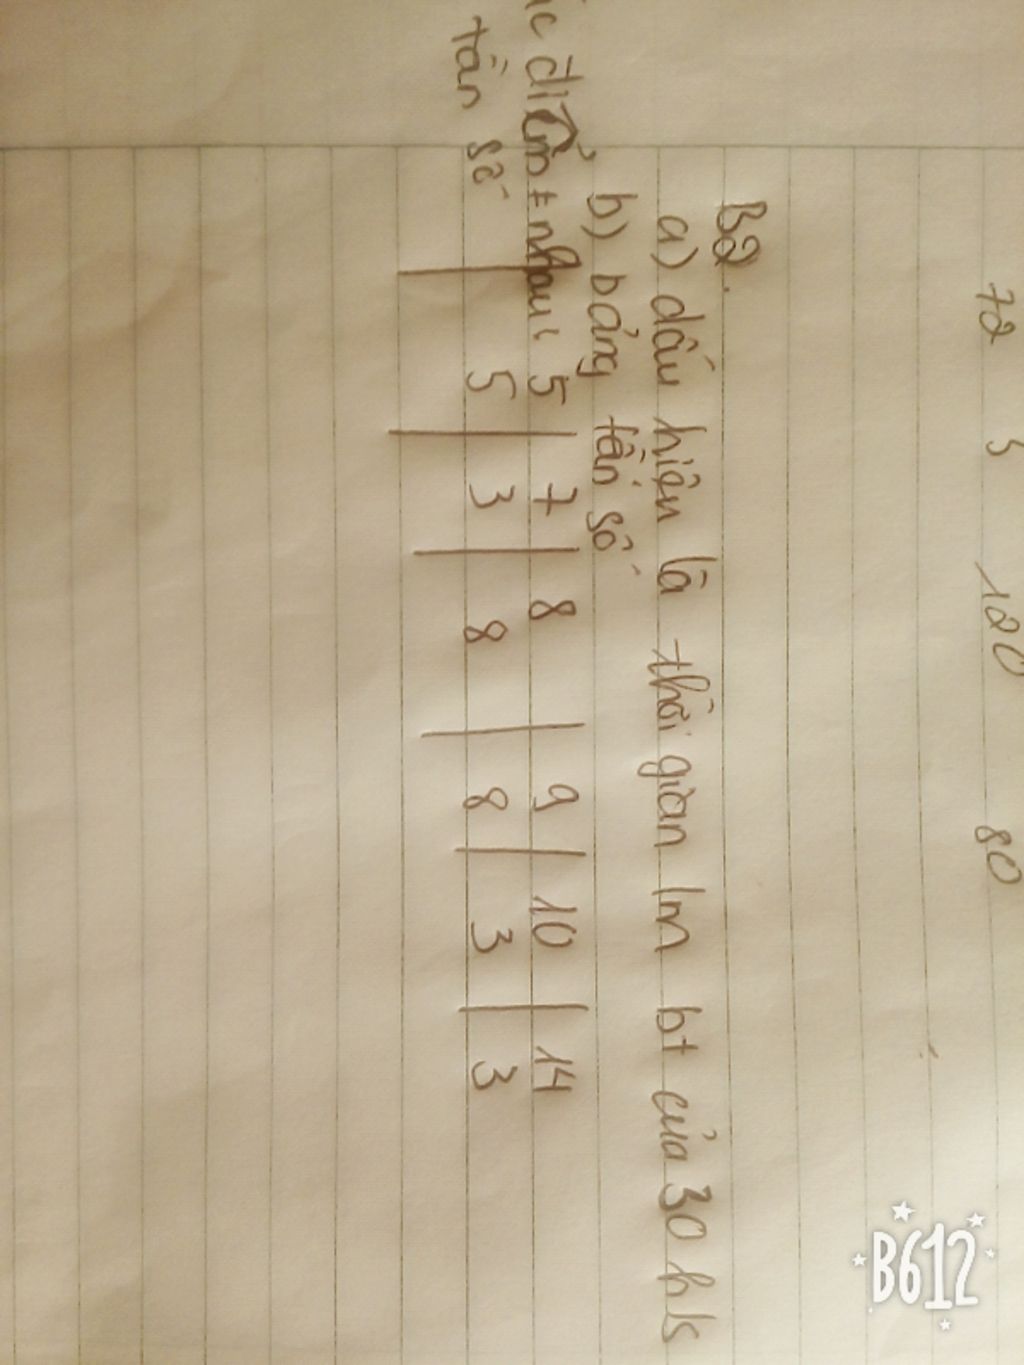 72 3 120 80
B2.
a) dấu hiệu là thời gian lm bt của 30 hs
b) bảng tần số
điểm ≠ nhau 5 7 8 9 10 14
tần số 5 3 8 8 3 3
B612